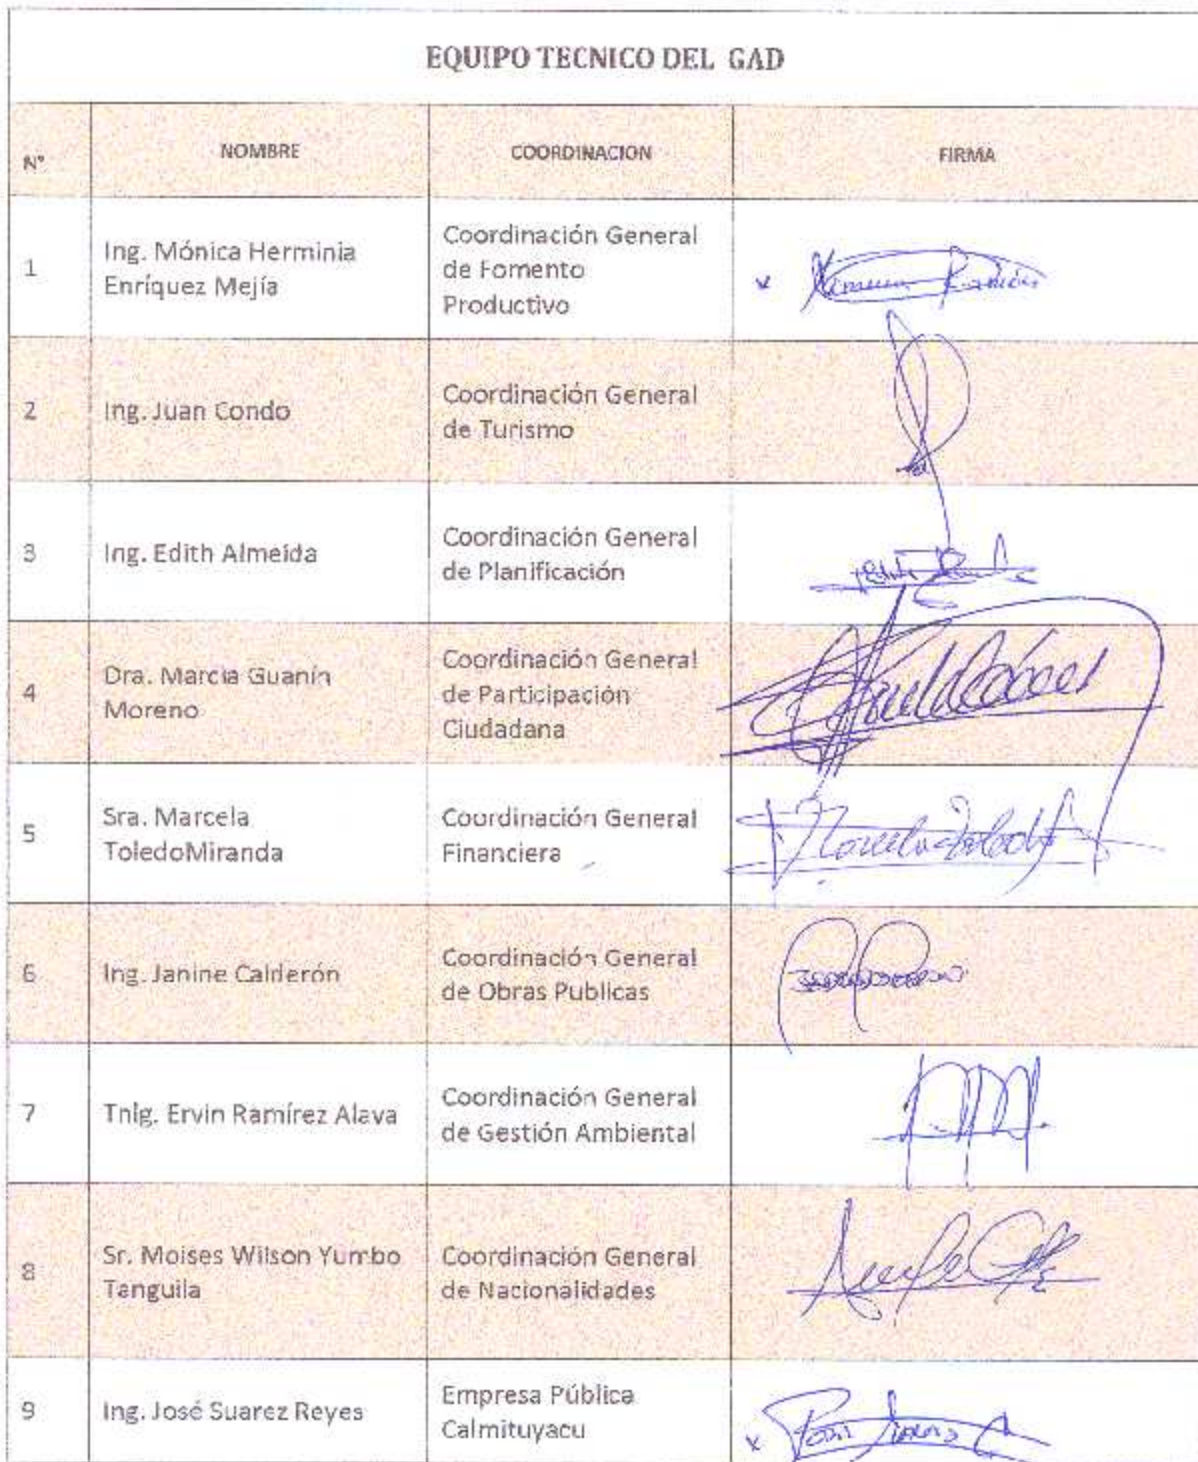 EQUIPO TECNICO DEL GAD
N° NOMBRE COORDINACION FIRMA
1 Ing. Mónica Herminia Enríquez Mejía Coordinación General de Fomento Productivo x
2 Ing. Juan Condo Coordinación General de Turismo
3 Ing. Edith Almeida Coordinación General de Planificación
4 Dra. Marcia Guanín Moreno Coordinación General de Participación Ciudadana
5 Sra. Marcela ToledoMiranda Coordinación General Financiera Marcela Toledo
6 Ing. Janine Calderón Coordinación General de Obras Publicas
7 Tnlg. Ervin Ramírez Alava Coordinación General de Gestión Ambiental
8 Sr. Moises Wilson Yumbo Tanguila Coordinación General de Nacionalidades
9 Ing. José Suarez Reyes Empresa Pública Calmituyacu x